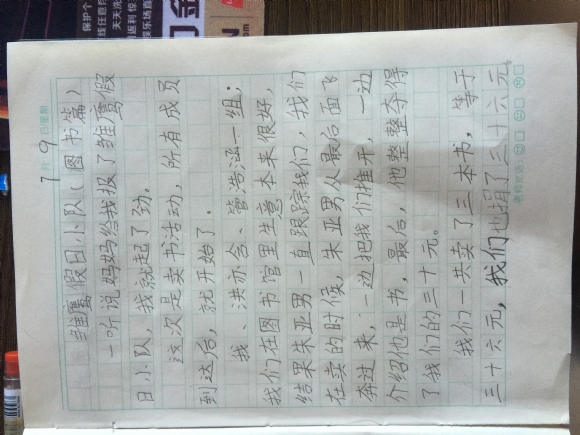 7月9日星期
雏鹰假日小队(图书篇)
一听说妈妈给我报了雏鹰假
日小队,我就起了劲。
这次是卖书活动,所有成员
到达后,就开始了。
我、洪亦含、管浩涵一组;
我们在图书馆里生意本来很好,
结果朱亚男一直跟踪我们,我们
在卖的时候,朱亚男从最后面飞
奔过来,一边把我们推开,一边
介绍他是书,最后,他整整夺得
了我们的三十元。
我们一共卖了三本书,等于
三十六元,我们也捐了三十六元。